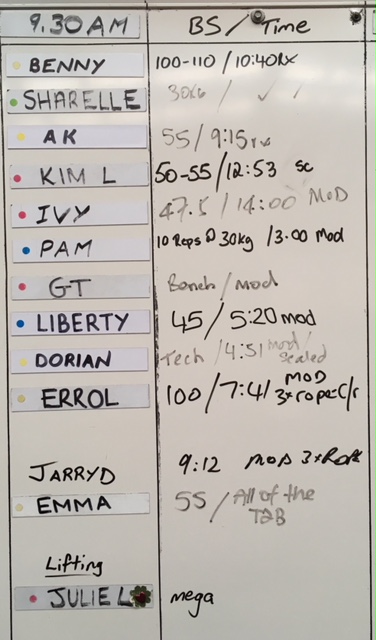 9.30AM BS / Time
BENNY 100-110 / 10:40Rx
SHARELLE 30kg / ✓ /
AK 55 / 9:15rx
KIM L 50-55 / 12:53 sc
IVY 47.5 / 14:00 MOD
PAM 10 Reps @ 30kg / 3.00 Mod
GT Bench / mod
LIBERTY 45 / 5:20 mod
DORIAN Tech / 4:51 mod/
scaled
ERROL 100 / 7:41 MOD
3x rope-c/r
JARRYD 9:12 MOD 3xRope
EMMA 55 / All of the
T2B
Lifting
JULIE L mega